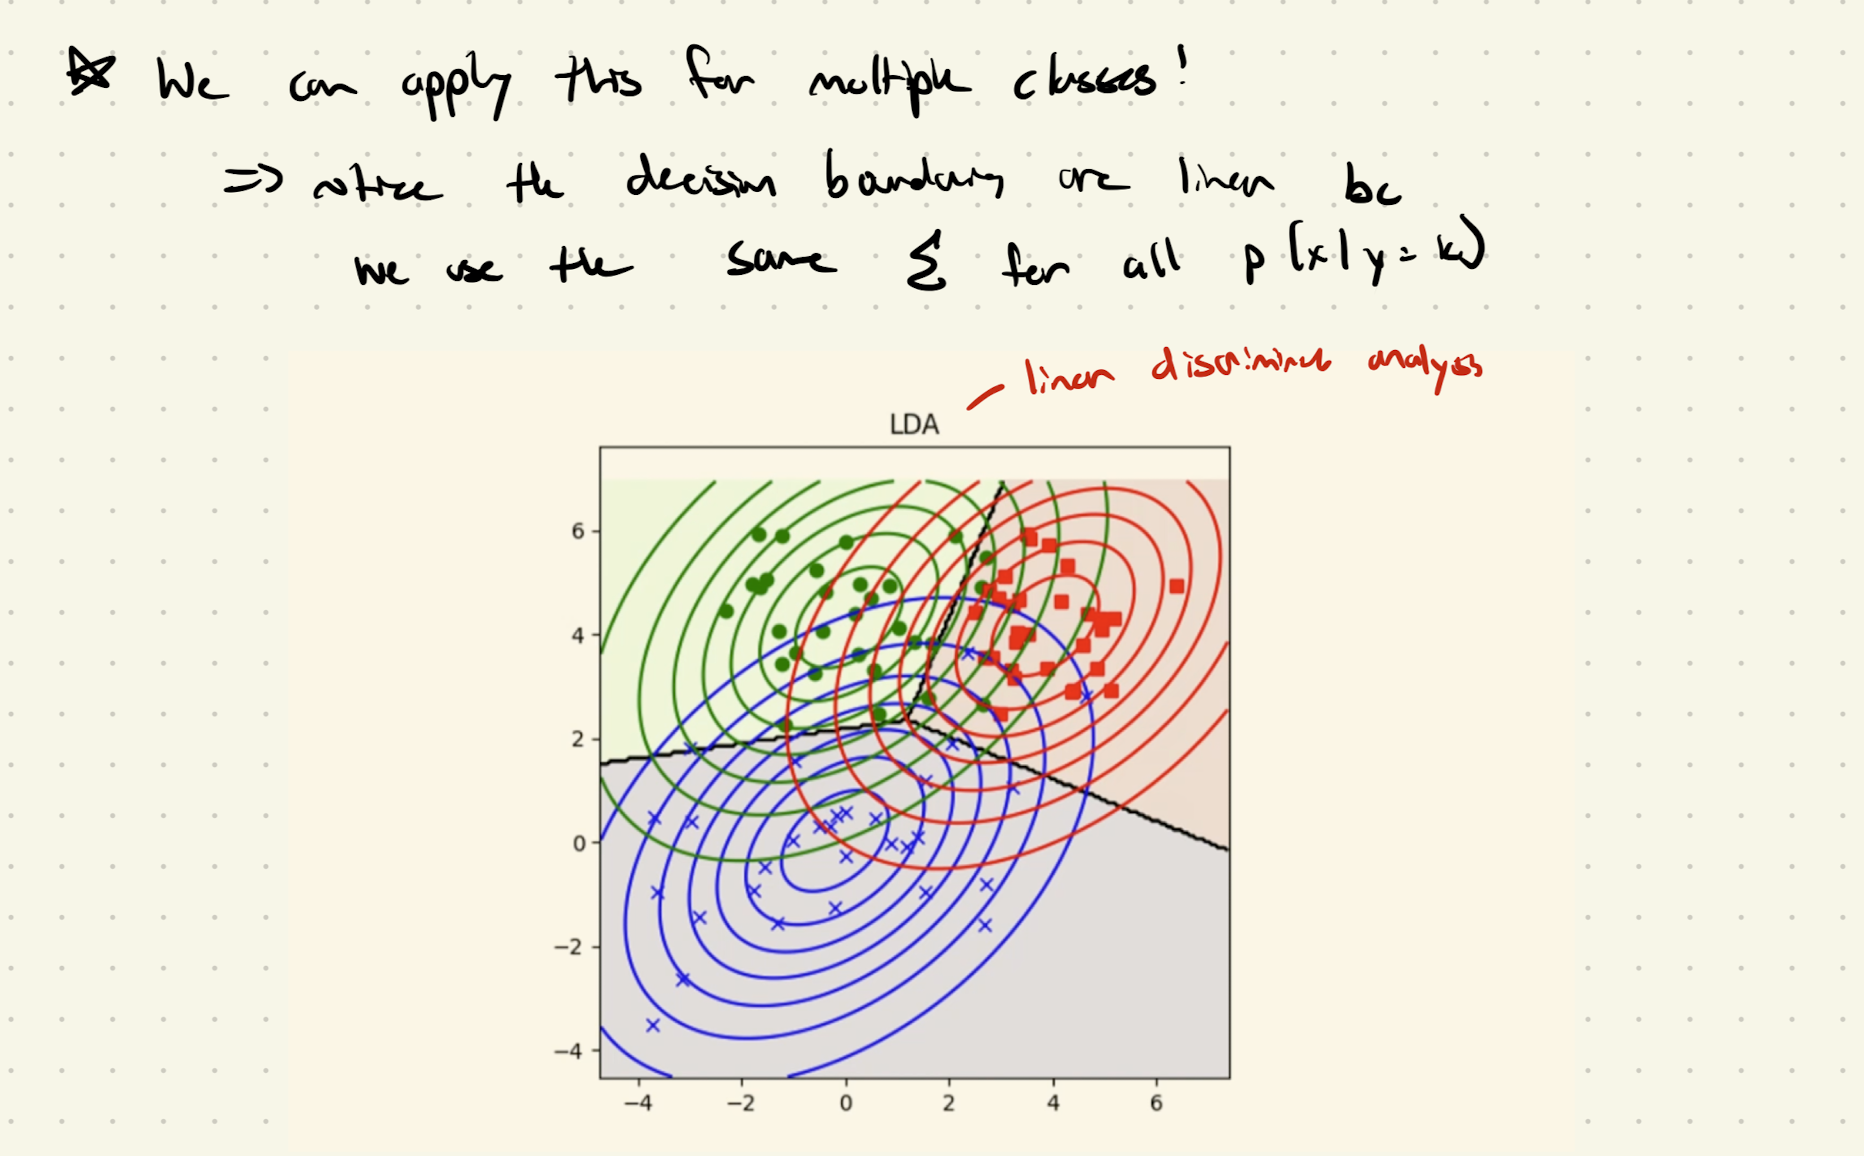 ☆ We can apply this for multiple classes!
=> notice the decision boundary are linear bc
we use the same Σ for all p(x|y=k)
linear discriminant analysis
LDA
6
4
2
0
−2
−4
−4 −2 0 2 4 6